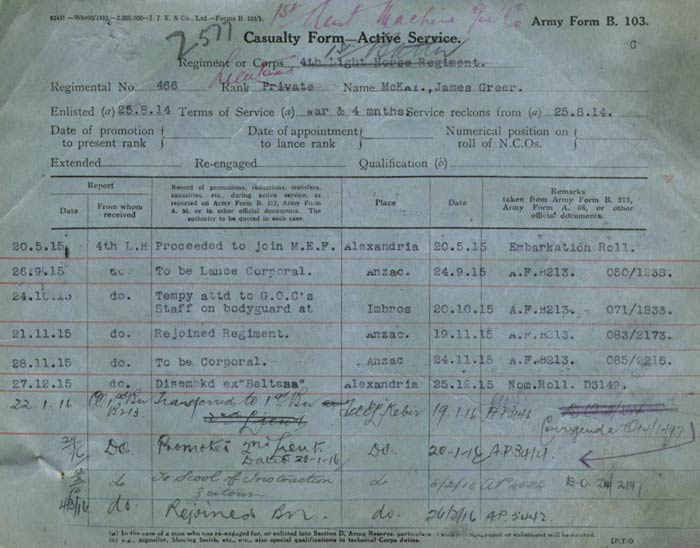 1st Aust Machine Gun Co
92431—W6490/1933—2,000,000—J. J. K. & Co., Ltd.—Forms B. 103/1. Army Form B. 103.
2577
Casualty Form—Active Service.
C
1st Battn
Regiment or Corps 4th Light Horse Regiment.
Lieutenant
Regimental No. 466 Rank Private Name McKay., James Greer.
Enlisted (a) 25.8.14 Terms of Service (a) war & 4 mnths Service reckons from (a) 25.8.14.
Date of promotion to present rank
Date of appointment to lance rank
Numerical position on roll of N.C.Os.
Extended Re-engaged Qualification (b)
Report
Date
From whom received
Record of promotions, reductions, transfers, casualties, etc., during active service, as reported on Army Form B. 213, Army Form A. 36, or in other official documents. The authority to be quoted in each case.
Place
Date
Remarks
taken from Army Form B. 213, Army Form A. 36, or other official documents.
20.5.15 4th L.H Proceeded to join M.E.F. Alexandria 20.5.15 Embarkation Roll.
26.9.15 do. To be Lance Corporal. Anzac. 24.9.15 A.F.B213. 050/1238.
24.10.15 do. Tempy attd to G.O.C's
Staff on bodyguard at Imbros 20.10.15 A.F.B213. 071/1833.
21.11.15 do. Rejoined Regiment. Anzac. 19.11.15 A.F.B213. 083/2173.
28.11.15 do. To be Corporal. Anzac 24.11.15 A.F.B213. 085/2216.
27.12.15 do. Disembkd ex"Beltana" Alexandria 25.12.15 Nom.Roll. D3149.
22.1.16 1st Bn B213 Transferred to 1st Bn Tel El Kebir 19.1.16
2nd Lieut
Corrigenda
Do. Promoted 2nd Lieut. Do. 20-1-16
Dated 20-1-16
do To Scool of Instruction do
Zeitoun
4/3/16 do. Rejoined Bn. do.
(a) In the case of a man who has re-engaged for, or enlisted into Section D, Army Reserve, particulars of such re-engagement or enlistment will be entered.
(b) e.g., Signaller, Shoeing Smith, etc., etc., also special qualifications in technical Corps duties. [P.T.O